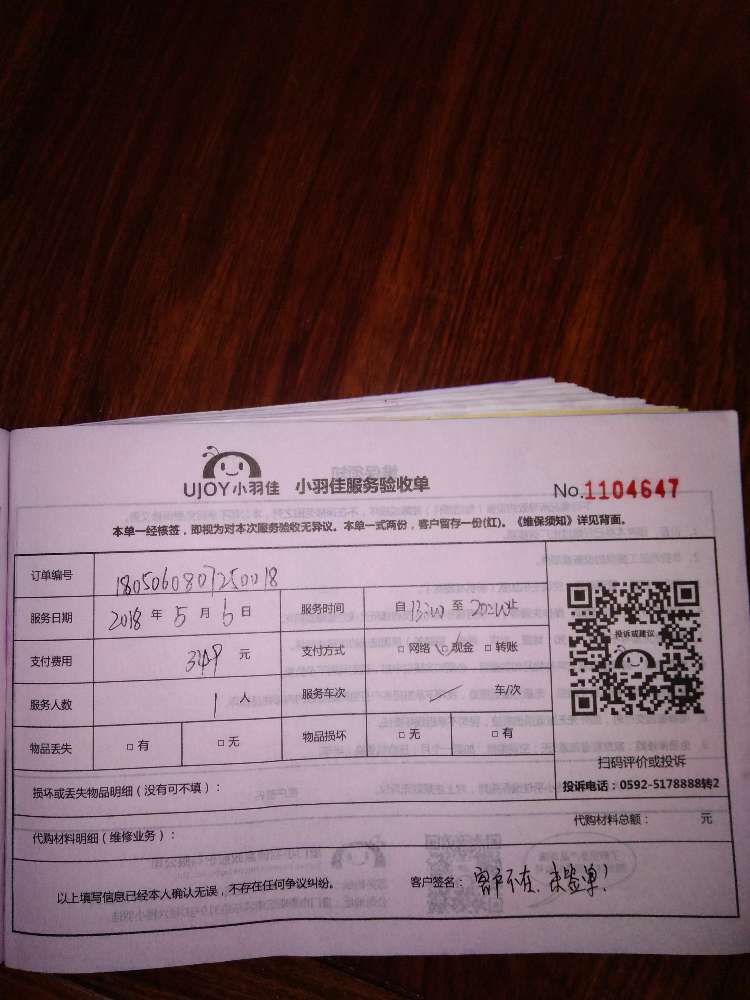 UJOY小羽佳 小羽佳服务验收单 No.1104647
本单一经核签，即视为对本次服务验收无异议。本单一式两份，客户留存一份(红)。《维保须知》详见背面。
订单编号 1805060807250018
服务日期 2018 年 5 月 6 日 服务时间 自 至 止
支付费用 349 元 支付方式 □ 网络 □ 现金 □ 转账
服务人数 1 人 服务车次 车/次
物品丢失 □ 有 □ 无 物品损坏 □ 无 □ 有
投诉或建议
扫码评价或投诉
投诉电话：0592-5178888转2
损坏或丢失物品明细（没有可不填）：
代购材料明细（维修业务）： 代购材料总额： 元
以上填写信息已经本人确认无误，不存在任何争议纠纷。 客户签名： 客户不在、未签单！